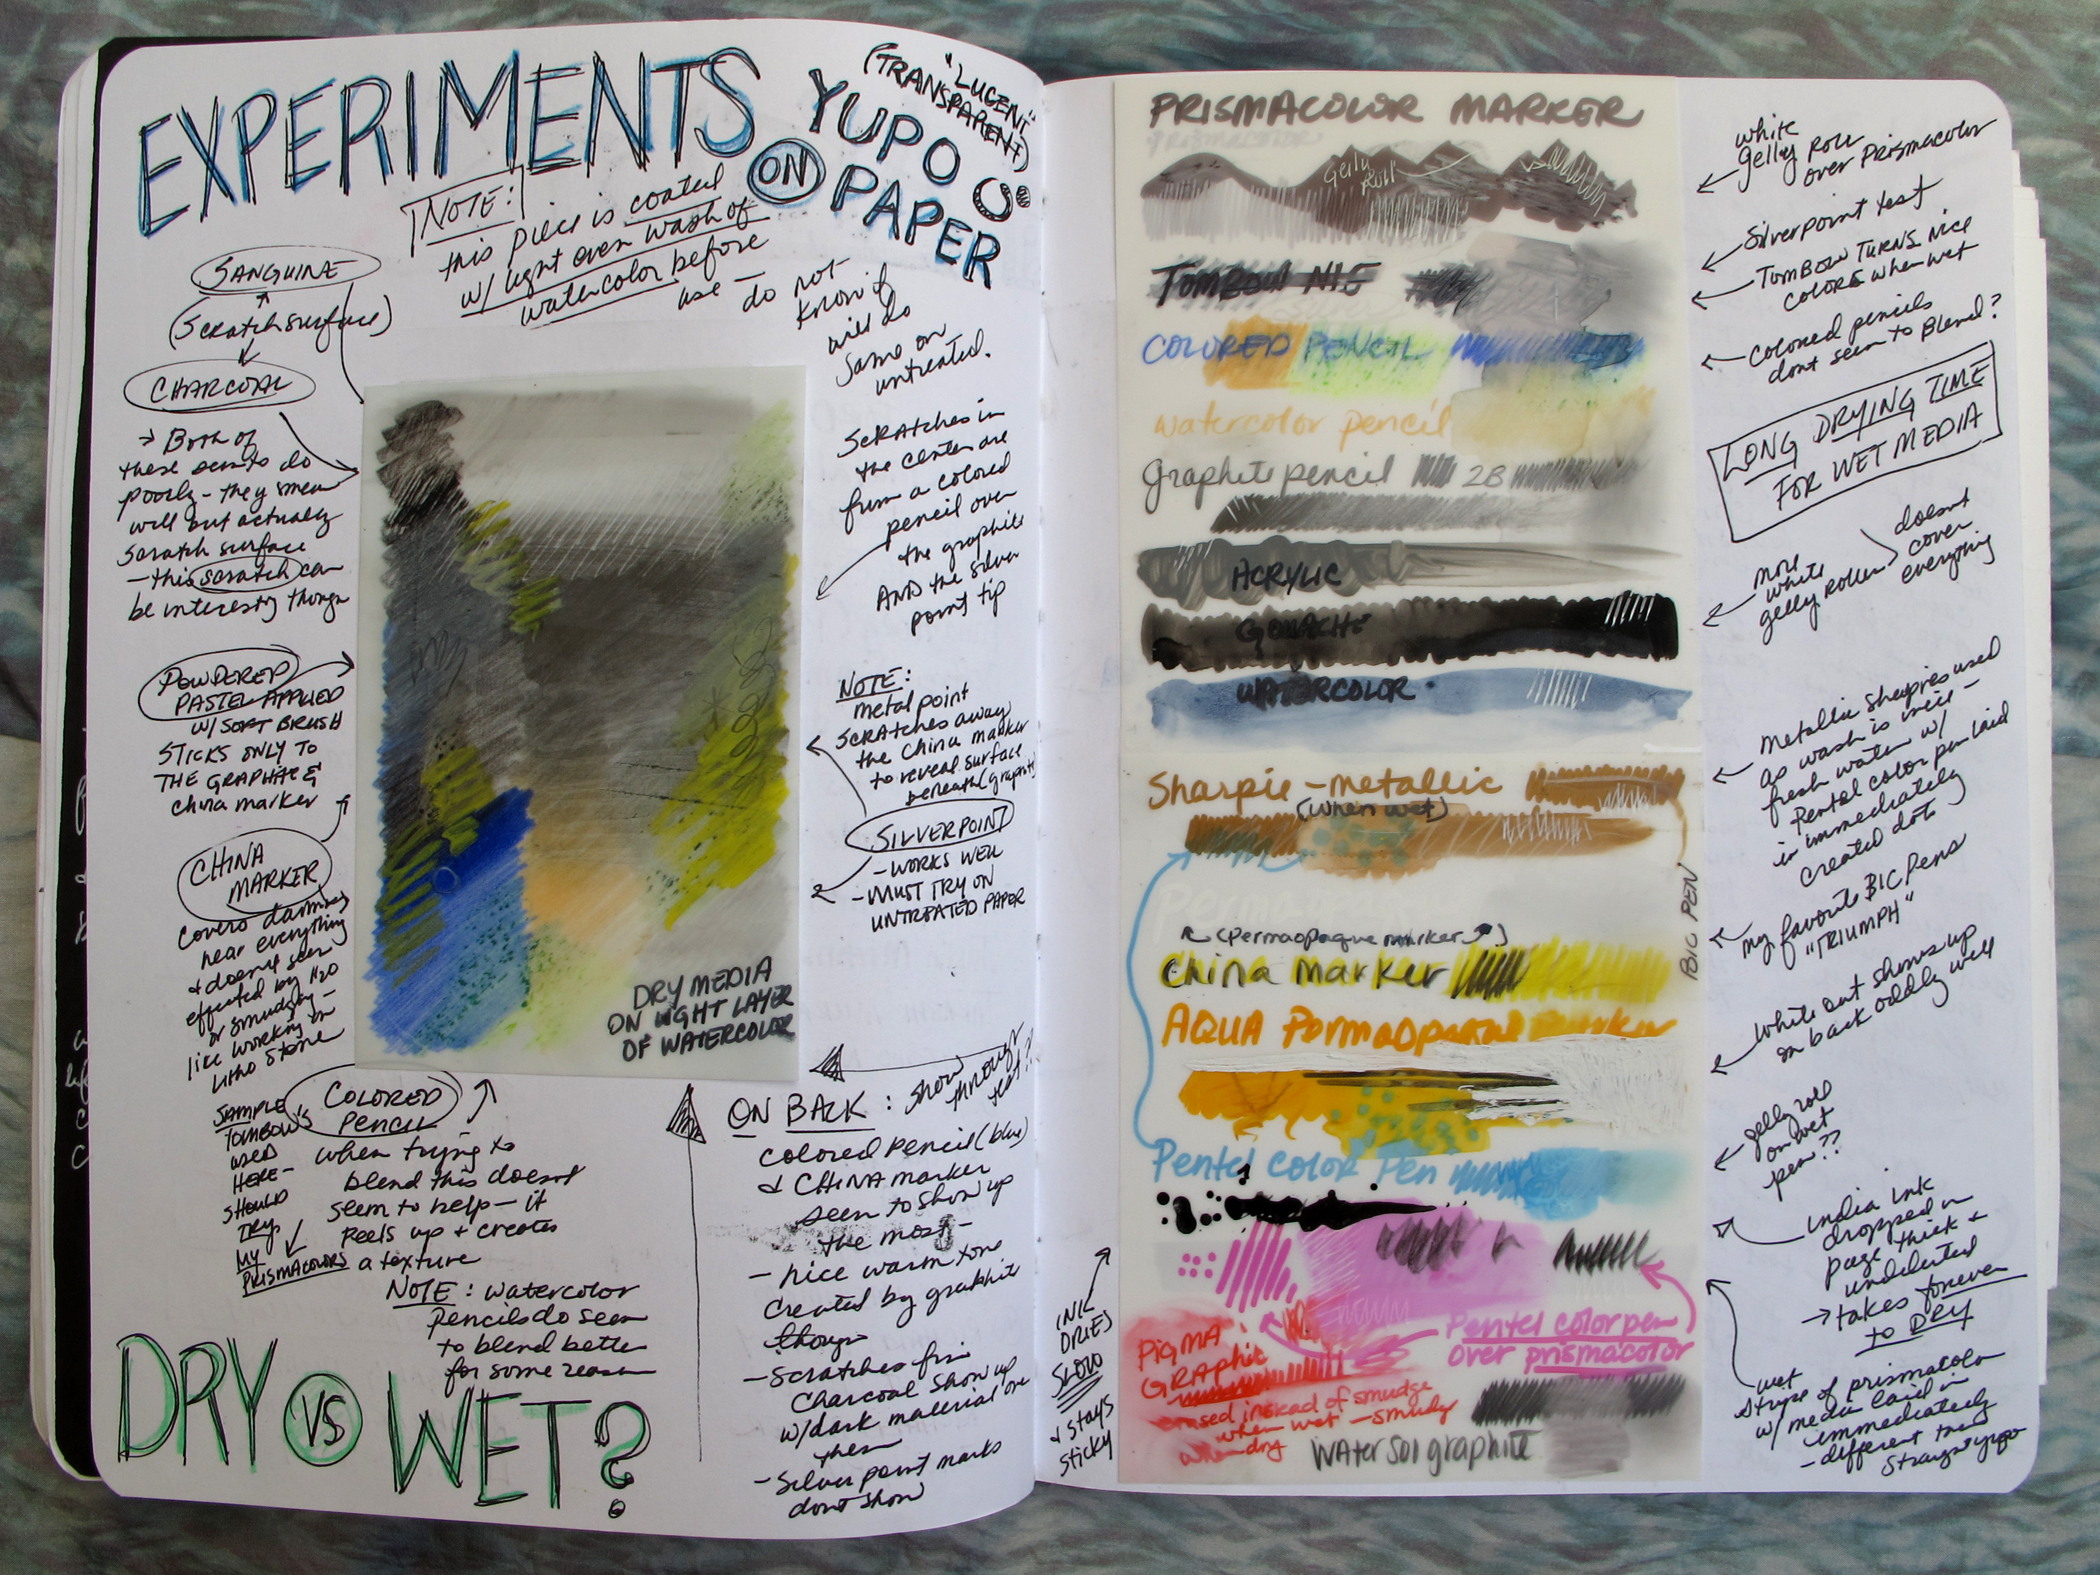 EXPERIMENTS
ON
YUPO
PAPER
("LUCENT"
TRANSPARENT)
NOTE:
this piece is coated
w/ light even wash of
watercolor before
use — do not
know if
will do
same on
untreated.
SANGUINE
(Scratch surface)
CHARCOAL
→ Both of
these seem to do
poorly - they smear
well but actually
scratch surface
- this scratch can
be interesting though
POWDERED
PASTEL APPLIED
w/ SOFT BRUSH
STICKS ONLY TO
THE GRAPHITE &
china marker
CHINA
MARKER
covers darn
near everything
& doesn't seem
effected by H2O
or smudging -
like working on
Litho Stone
COLORED
PENCIL
when trying to
blend this doesn't
seem to help - it
peels up & creates
a texture
SAMPLE
TOMBOW'S
USED
HERE -
SHOULD
TRY
MY
PRISMACOLORS
NOTE: watercolor
pencils do seem
to blend better
for some reason
DRY VS WET?
Scratches in
the center are
from a colored
pencil over
the graphite
AND the silver
point tip
NOTE:
metal point
scratches away
the china marker
to reveal surface
beneath (graphite)
SILVERPOINT
- WORKS WELL
- MUST TRY ON
UNTREATED PAPER
DRY MEDIA
ON LIGHT LAYER
OF WATERCOLOR
ON BACK: show
through
test??
colored pencil (blue)
& CHINA marker
seem to show up
the most -
- nice warm tone
created by graphite
though
- Scratches from
Charcoal show up
w/dark material over
them
- Silver point marks
dont show
INK
DRIES
SLOW
& stays
sticky
PRISMACOLOR MARKER
PRISMACOLOR
Gelly
Roll
TOMBOW N15
COLORED PENCIL
watercolor pencil
Graphite pencil 2B
ACRYLIC
GOUACHE
WATERCOLOR
Sharpie - metallic
(when wet)
BIC PEN
Perma
(permaopaque marker)
China marker
AQUA Permaopaque marker
Pentel Color Pen
Pentel color pen
over prismacolor
PIGMA
GRAPHIC
erased instead of smudge
when wet - smudgy
when dry
Water Sol graphite
white
gelly Roll
over Prismacolor
Silverpoint test
TOMBOW TURNS NICE
COLORS when wet
Colored pencils
dont seem to Blend?
LONG DRYING TIME
FOR WET MEDIA
more
white
gelly roller
doesnt
cover
everything
Metallic Sharpies used
as wash is nice -
fresh water w/
Pentel color pen laid
in immediately
created dots
my favorite BIC Pens
"TRIUMPH"
White out shows up
on back oddly well
gelly roll
on wet
pen??
india ink
dropped on
page thick &
undiluted
→ takes forever
to DRY
wet
strips of prismacolor
w/ media laid in
immediately
- different than
straight yupo